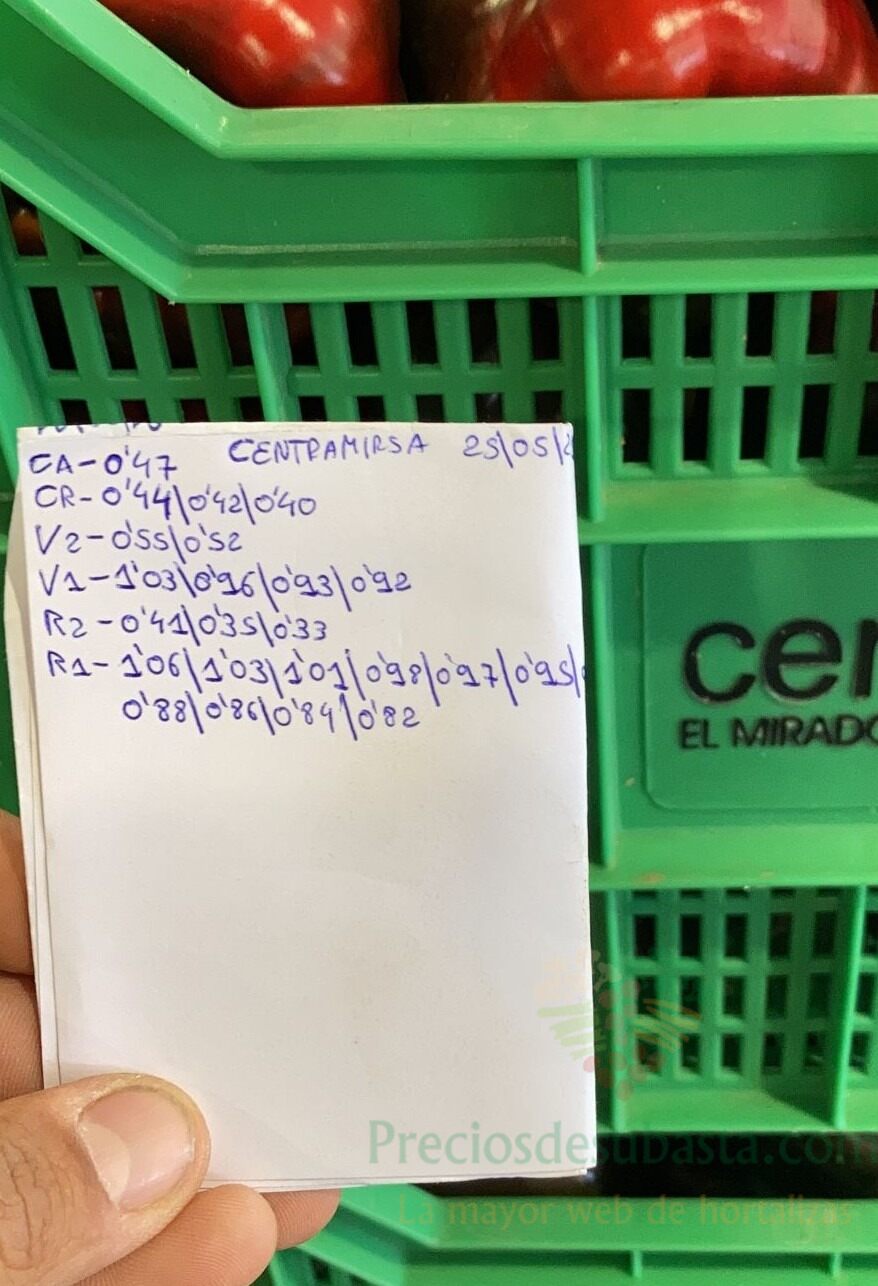 CENTRAMIRSA 25\05\2
CA-0'47
CR-0'44\0'42\0'40
V2-0'55\0'52
V1-1'03\0'96\0'93\0'92
R2-0'41\0'35\0'33
R1-1'06\1'03\1'01\0'98\0'97\0'95\
0'88\0'86\0'84\0'82
cer
EL MIRADO
Preciosdesubasta.com
La mayor web de hortalizas